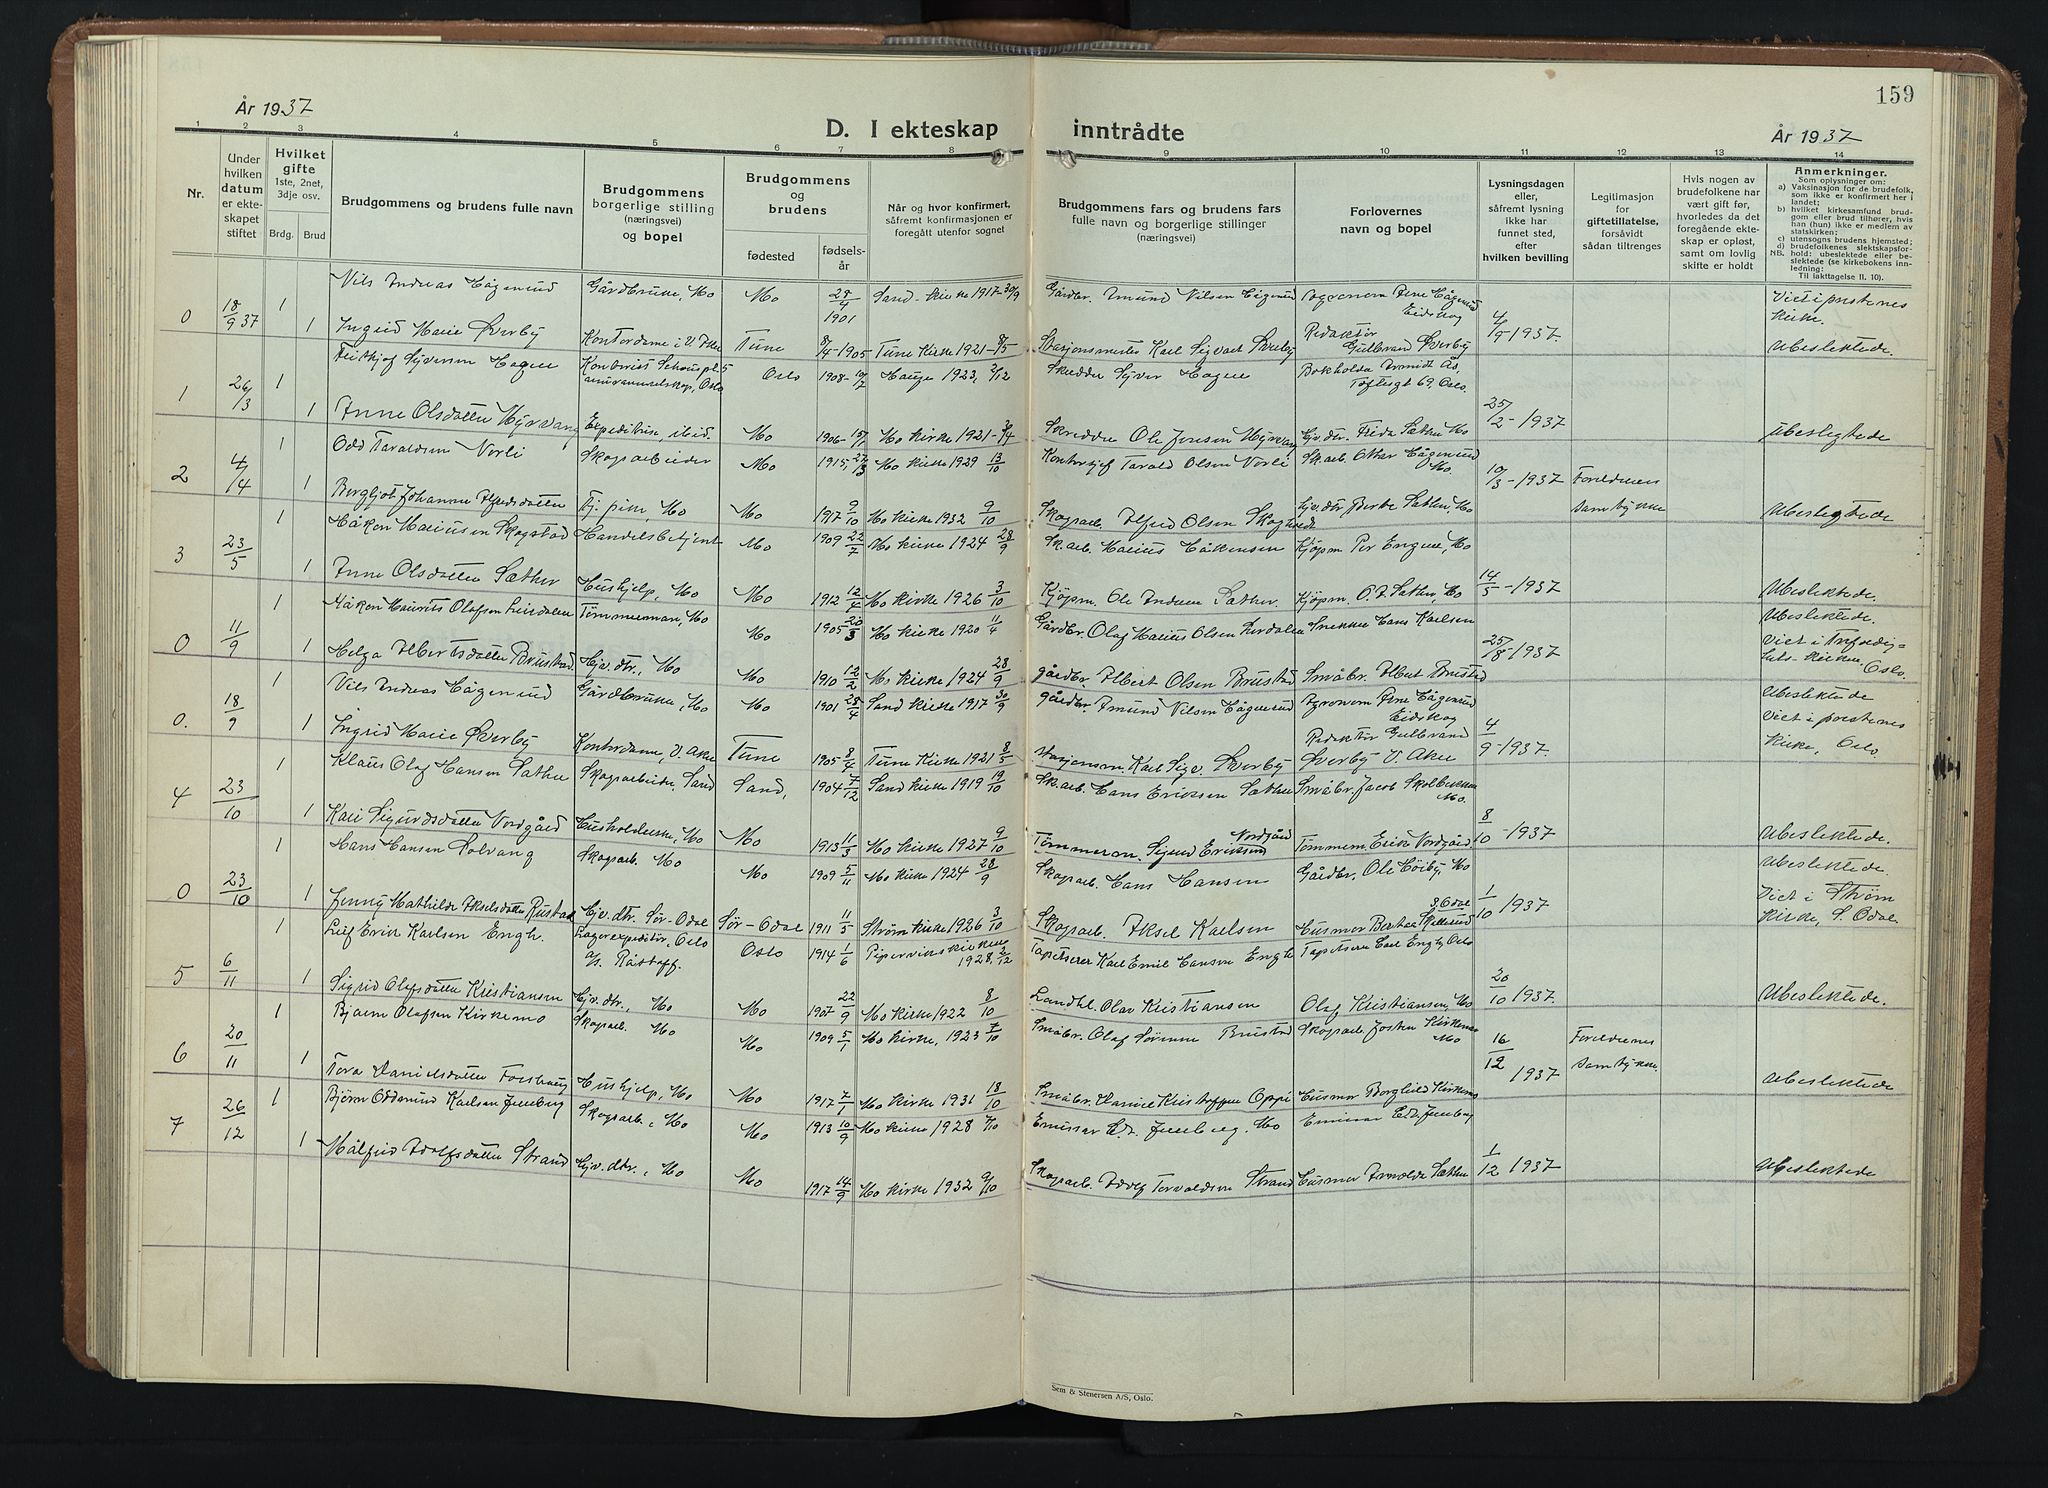 159
År 1937
D. I ekteskap inntrådte
År 1937
1 2 3 4 5 6 7 8 9 10 11 12 13 14
Nr.
Under hvilken datum er ekteskapet stiftet
Hvilket gifte
1ste, 2net, 3dje osv.
Brdg. Brud
Brudgommens og brudens fulle navn
Brudgommens borgerlige stilling (næringsvei) og bopel
Brudgommens og brudens
fødested
fødselsår
Når og hvor konfirmert, såfremt konfirmasjonen er foregått utenfor sognet
Brudgommens fars og brudens fars fulle navn og borgerlige stillinger (næringsvei)
Forlovernes navn og bopel
Lysningsdagen eller, såfremt lysning ikke har funnet sted, efter hvilken bevilling
Legitimasjon for giftetillatelse, forsåvidt sådan tiltrenges
Hvis nogen av brudefolkene har vært gift før, hvorledes da det foregående ekteskap er opløst, samt om lovlig skifte er holdt
Anmerkninger.
Som oplysninger om:
a) Vaksinasjon for de brudefolk, som ikke er konfirmert her i landet;
b) hvilket kirkesamfund brudgom eller brud tilhører, hvis han (hun) ikke er medlem av statskirken;
c) utensogns brudens hjemsted;
d) brudefolkenes slektskapsforhold: ubeslektede eller beslektede (se kirkebokens innledning:
NB. Til iakttagelse II. 10).
0 18/9 37 1 Nils Andreas Hågensud Gårdbruker, Mo Mo 28/4 1901 Sand kirke 1917 30/9 Gårdbr. Amund Nilsen Agronom Arne Eidskog Viet i prestenes kirke.
1 Ingrid Marie Øverby Kontordame i V. Aker Tune 8/4 1905 Tune Kirke 1921 8/5 Stasjonsmester Karl Sigvart Øverby Redaktør Gulbrand Øverby 4/9-1937 Ubeslektede.
1 26/3 1 Fritjof Syversen Hagen Oslo 1908 Hauge 1923, Skredder Syver Hagen Bokholder 69, Oslo
1 Anne Olsdatter Myrvang Expeditrise, ibid. Mo 1906 15/1 Mo kirke 1921 Skredder Ole Jensen Myrvang Hjv. dtr. Frida Sæther Mo 25/2-1937 Ubeslegtede
2 4/4 1 Odd Taraldsen Norli Skogsarbeider Mo 1915, 27/3 Mo kirke 1929 13/10 Tarald Olsen Norli Sk.arb. Mo. 10/3-1937 Foreldrenes
1 Bergljot Johanne Alfredsdatter Tj. pike, Mo Mo 1917 9/10 Mo kirke 1932 9/10 Skogsarb. Alfred Olsen Hjv. dtr. Sæther, Mo samtykke Ubeslegtede
3 23/5 1 Håkon Mariussen Skogstad Handelsbetjent Mo 1909 22/7 Mo kirke 1924 28/9 Sk.arb. Marius Håkensen Kjøpm Per Mo
1 Anne Olsdatter Sæther Hushjelp, Mo Mo 1912 12/4 Mo kirke 1926 3/10 Kjøpm. Ole Andreas Sæther. Kjøpm. O. A. Sæther, Mo 14/5-1937 Ubeslektede.
0 11/9 1 Håkon Maurits Olafsen Tømmermann, Mo Mo 1905 20/3 Mo kirke 1920 11/4 Gårdbr. Olaf Marius Olsen Snekker Hans Karlsen Ubeslektede.
1 Helga Albertsdatter Brustad Hjv. dtr., Mo Mo 1910 12/2 Mo kirke 1924 28/9 Gårdbr. Albert Olsen Brustad Småbr. Albert Brustad 25/8-1937 Viet i Trefoldighets-kirken, Oslo.
0. 18/9 1 Nils Andreas Hågensud Gårdbruker, Mo Mo 1901 28/4 Sand kirke 1917 30/9 Gårdbr. Amund Nilsen Agronom Arne Eidskog Ubeslektede
1 Ingrid Marie Øverby Kontordame, V. Aker Tune 1905 8/4 Tune Kirke 1921 8/5 Stasjonsm. Karl Sigv. Øverby Redaktør Gulbrand Øverby V. Aker 4/9-1937. Viet i prestenes kirke, Oslo.
4 23/10 1 Klaus Olaf Hansen Sæther Skogsarbeider, Sand Sand, 1904 7/12 Sand kirke 1919 19/10 Sk.arb. Hans Eriksen Sæther Småbr. Jacob Mo.
1 Kari Sigurdsdatter Nordgård Husholderske, Mo Mo 1913 11/3 Mo kirke 1927 9/10 Tømmerm. Sigurd Eriksen Nordgård Tømmerm. Erik Nordgård 8/10-1937 Ubeslektede.
0 23/10 1 Hans Hansen Solvang Skogsarb. Mo Mo 1909 5/11 Mo kirke 1924 28/9 Skogsarb. Hans Hansen Gårdbr. Ole Høiby, Mo Ubeslektede.
1 Jenny Mathilde Akselsdatter Rustad Hjv. dtr. Sør-Odal Sør-Odal 1911 11/5 Strøm kirke 1926 3/10 Skogsarb. Aksel Karlsen Husmor Berthe S. Odal 1/10 1937 Viet i Strøm kirke, S. Odal
5 6/11 1 Leif Erik Karlsen Engh. Lagerexpeditør, Oslo a/s. Råstoff. Oslo 1914 1/6 Pipervikskirken 1928. 2/12 Tapetserer Karl Emil Hansen Engh Tapetserer Carl Engh, Oslo
1 Sigrid Olafsdatter Kristiansen Hjv. dtr., Mo Mo 1907 22/9 Mo kirke 1922 8/10 Landhl. Olav Kristiansen Olaf Kristiansen, Mo 20/10 1937. Ubeslektede.
6 20/11 1 Bjarne Olafsen Kirkemo Skogsarb. Mo Mo 1909 5/1 Mo kirke, 1923 7/10 Småbr. Olaf Brustad Skogsarb. Jostein Kirkemo Mo 16/12 1937 Foreldrenes samtykke.
1 Tora Danielsdatter Hushjelp, Mo Mo 1917 7/1 Mo Kirke 1931 18/10 Småbr. Daniel Kristoffersen Oppi Husmor Borghild Kirkemo Ubeslektede
7 26/12 1 Bjørn Oddmund Karlsen Skogsarb., Mo Mo 1913 10/9 Mo kirke 1928 7/10 Emissær Mo Emissær
1 Målfrid Adolfsdatter Strand Hjv. dtr., Mo Mo 1917 14/9 Mo kirke 1932 9/10 Skogsarb. Adolf Torvaldsen Strand Husmor Sæther 1/12 1937 Ubeslektede
Sem & Stenersen A/S, Oslo.